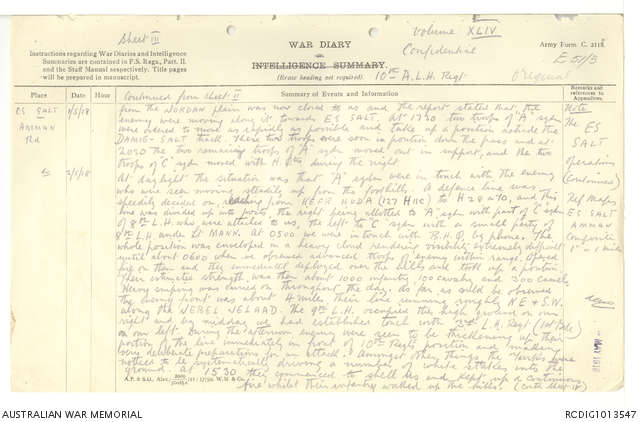 Sheet III
Volume XLIV
Confidential
Army Form C. 2118.
E 511/3
Original
Instructions regarding War Diaries and Intelligence
Summaries are contained in F.S. Regs., Part. II.
and the Staff Manual respectively. Title pages
will be prepared in manuscript.
WAR DIARY
OR
INTELLIGENCE SUMMARY.
(Erase heading not required).
10th A.L.H. Regt
Place
Date
Hour
Summary of Events and Information
Remarks and
references to
Appendices.
Continued from sheet II
ES SALT
AMMAN
Rd
1/5/18
from the JORDAN plain was now closed to us and the report stated that the
enemy were moving along it towards ES SALT. At 1730 two troops of "A" sqdn
were ordered to move as rapidly as possible and take up a position astride the
DAMIE-SALT track. These two troops were soon in position down the pass and at
2030 the two remaining troops of "A" sqdn moved out in support, and the two
troops of "C" sqdn moved with H.Qrs during the night.
2/5/18
At daylight the situation was that "A" sqdn were in touch with the enemy
who were seen moving steadily up from the foothills. A defence line was
speedily decided on, from KEFR HUDA (127 H11c) to H28 a 70, and this
line was divided up into posts, the right being allotted to "A" sqdn with part of "C" sqdn
of 8th L.H. who were attached to us, the left to "C" sqdn with a small party
8th L.H. under Lt MACK. At 0500 we were in touch with B.H.Q by phone. The
whole position was enveloped in a heavy cloud rendering visibility extremely difficult
until about 0600 when we observed advanced troops of enemy within range. Opened
fire on them and they immediately deployed over the hills and took up a position.
Their estimated strength was then about 1000 infantry, 100 cavalry and 300 camels.
Heavy sniping was carried on throughout the day. As far as could be observed
the enemy front was about 4 miles, their line running roughly NE & S.W.
along the JEBEL JELAAD. The 9th L.H. occupied the high ground on our
right and by midday we had established touch with 2nd L.H. Regt (1st Bde)
on our left. During the afternoon enemy were seen to be thickening up that
portion of the line immediately in front of 10th Regts position and making
very deliberate preparations for an attack. Amongst other things the Turks were
noticed to be systematically driving a number of white stakes into the
ground. At 1530 they commenced to shell us and kept up a continuous
fire whilst their infantry worked up the hills. (contd sheet IV)
Note
The ES
SALT
operations
(Continued)
Ref Maps
ES SALT
AMMAN
Composite
1" = 1 mile
MAY 1918
A.P. & S.D., Alex.
W.D. & Co.
AUSTRALIAN WAR MEMORIAL
RCDIG1013547